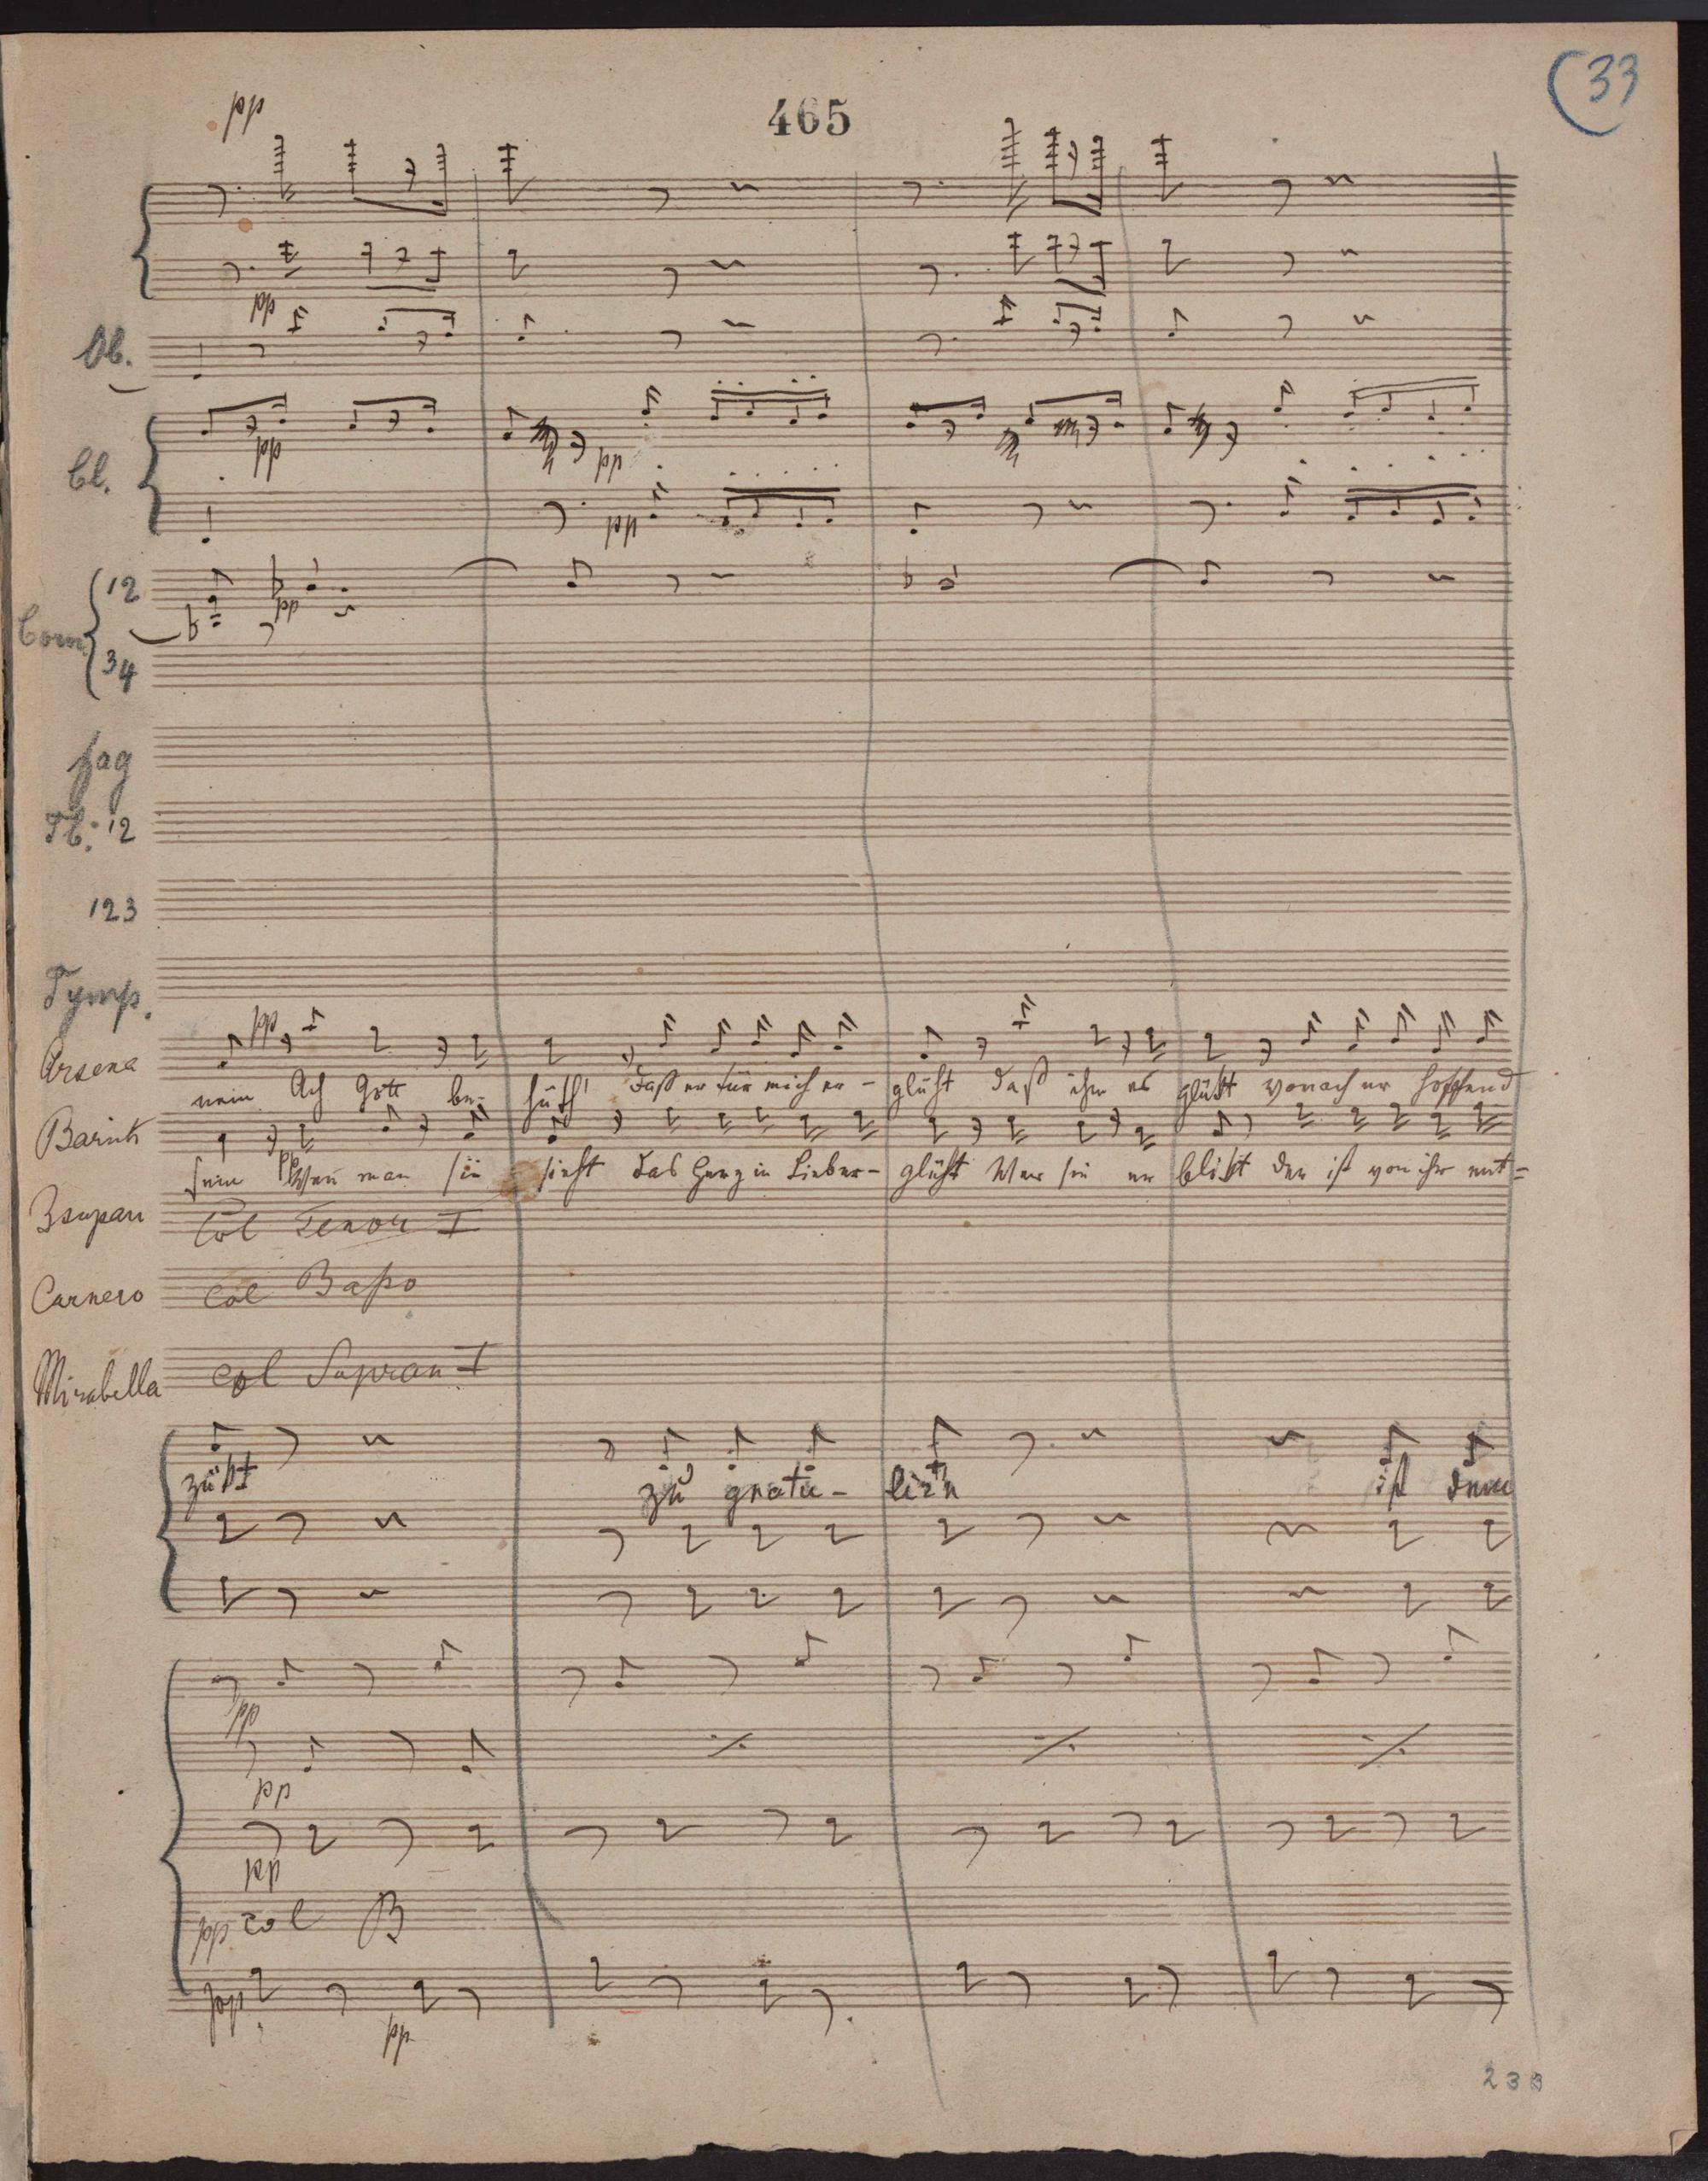 pp
465
33
pp
Ob.
pp
Cl.
pp
pp
12
pp
Corn
34
fag
Tb: 12
123
Tymp.
pp
Arsena
nein Ach Gott be- hüth' daß er für mich er- glüht daß ihm es glükt wonach er hoffend
Barink
pp
sein Wen man sie sieht das Herz in Lieb er- glüht Wer sie er blikt der ist von ihr ent-
Zsupan
Col Tenor I
Carnero
Col Basso
Mirabella
Col Sopran I
zükt zu gratu- lir'n ist denn
pp
pp
pp
pp col B
pp
pp
233